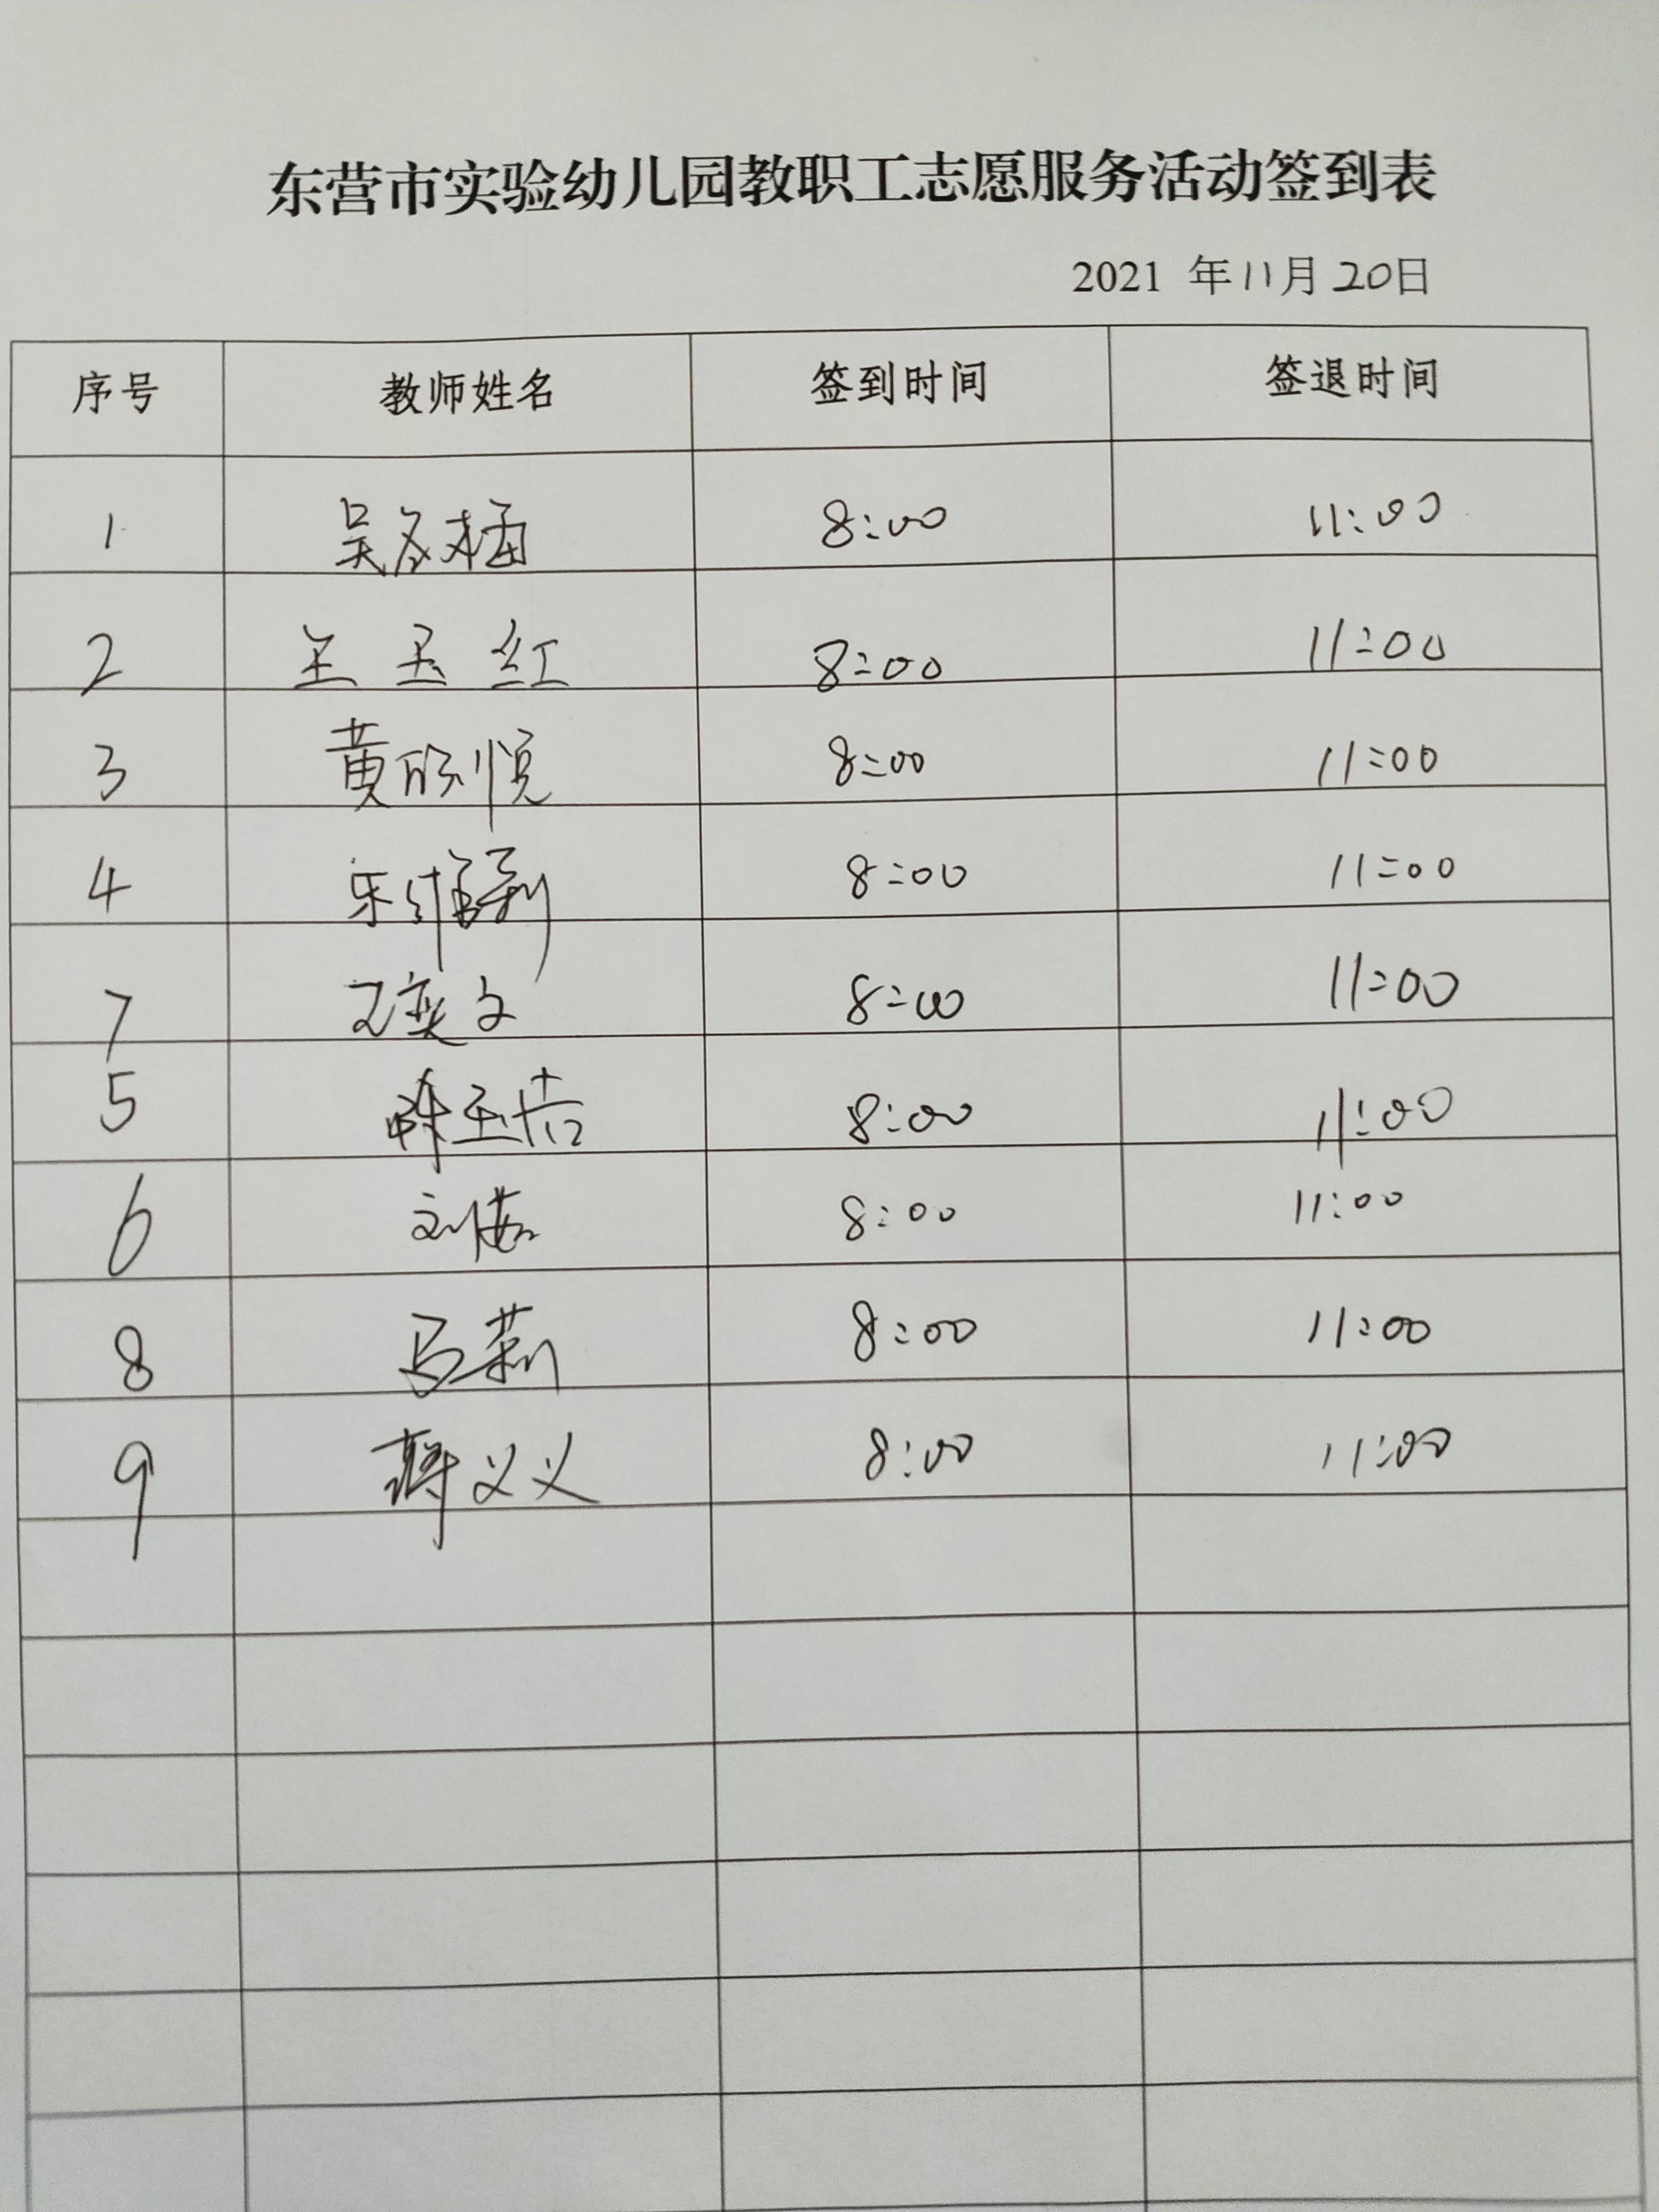 东营市实验幼儿园教职工志愿服务活动签到表
2021 年11月20日
序号 教师姓名 签到时间 签退时间
1 吴冬梅 8:00 11:00
2 王玉红 8:00 11:00
3 黄欣悦 8:00 11:00
4 8:00 11:00
7 8:00 11:00
5 陈玉洁 8:00 11:00
6 8:00 11:00
8 马莉 8:00 11:00
9 蒋义义 8:00 11:00